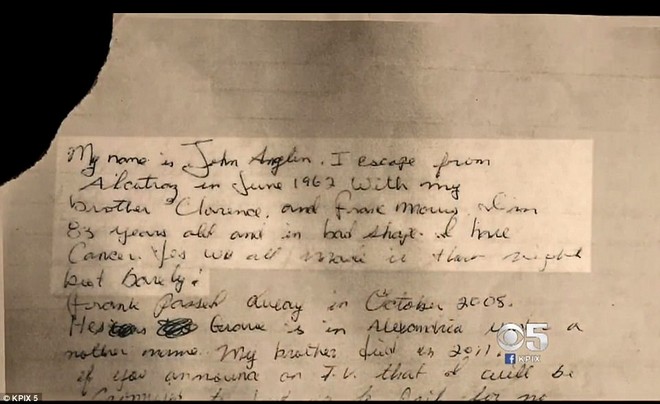 My name is John Anglin. I escape from
Alcatraz in June 1962 With my
brother Clarence, and Frank Morris. I'm
83 years old and in bad shape. I have
Cancer. Yes we all Made it that night
but barely!
Frank Passed away in October 2005.
Hes Grave is in Alexandria under a
nother name. My brother died in 2011.
if you announce on T.V. that I will be
to Jail for no
5
KPIX
© KPIX 5